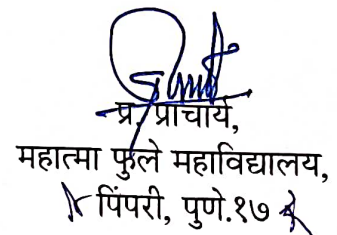 प्र. प्राचार्य,
महात्मा फुले महाविद्यालय,
पिंपरी, पुणे.१७